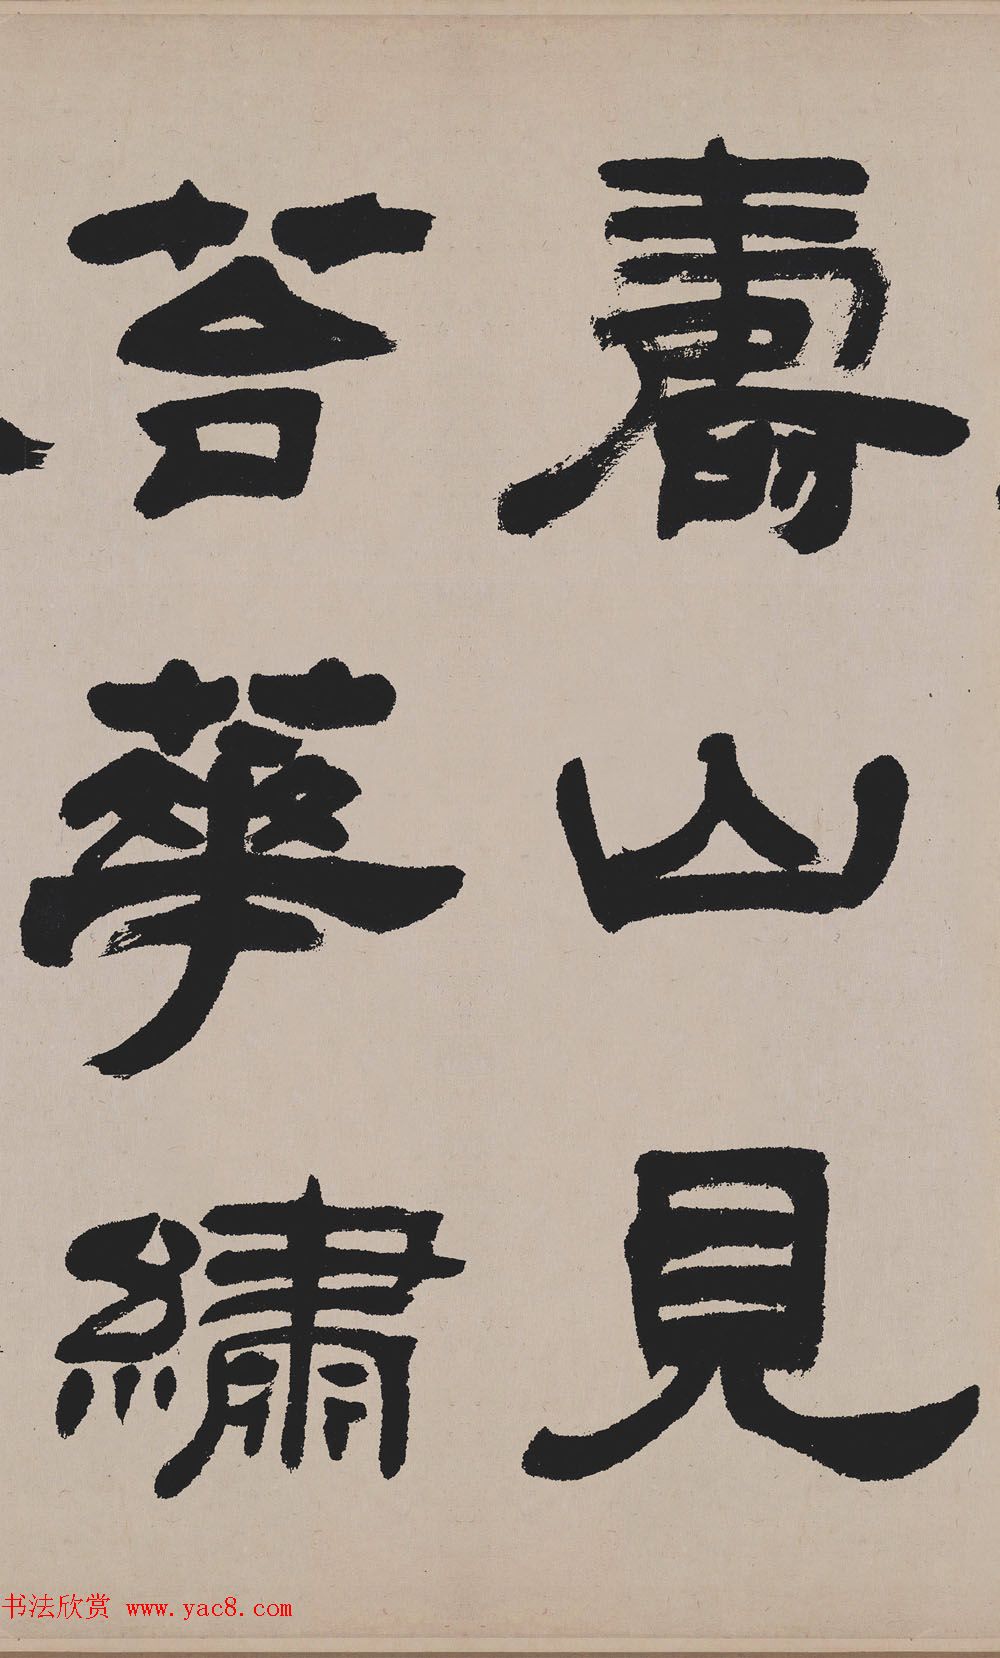 壽山見
苔華繡
书法欣赏 www.yac8.com